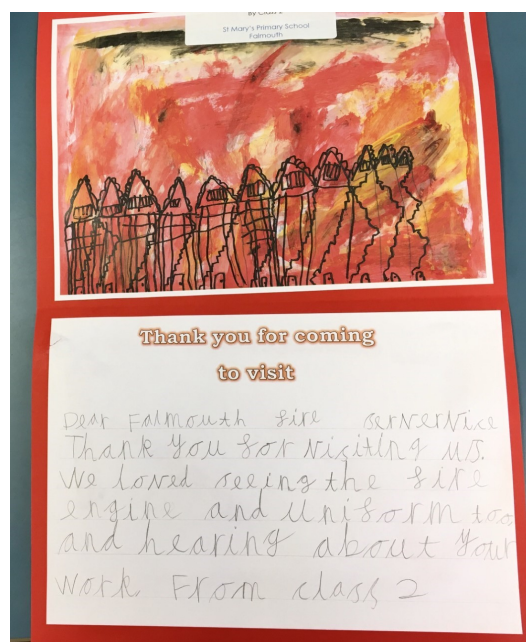 St Mary's Primary School
Falmouth
Thank you for coming
to visit
Dear Falmouth fire servervice
Thank you for visiting us.
We loved seeing the fire
engine and uniform too
and hearing about your
work From class 2